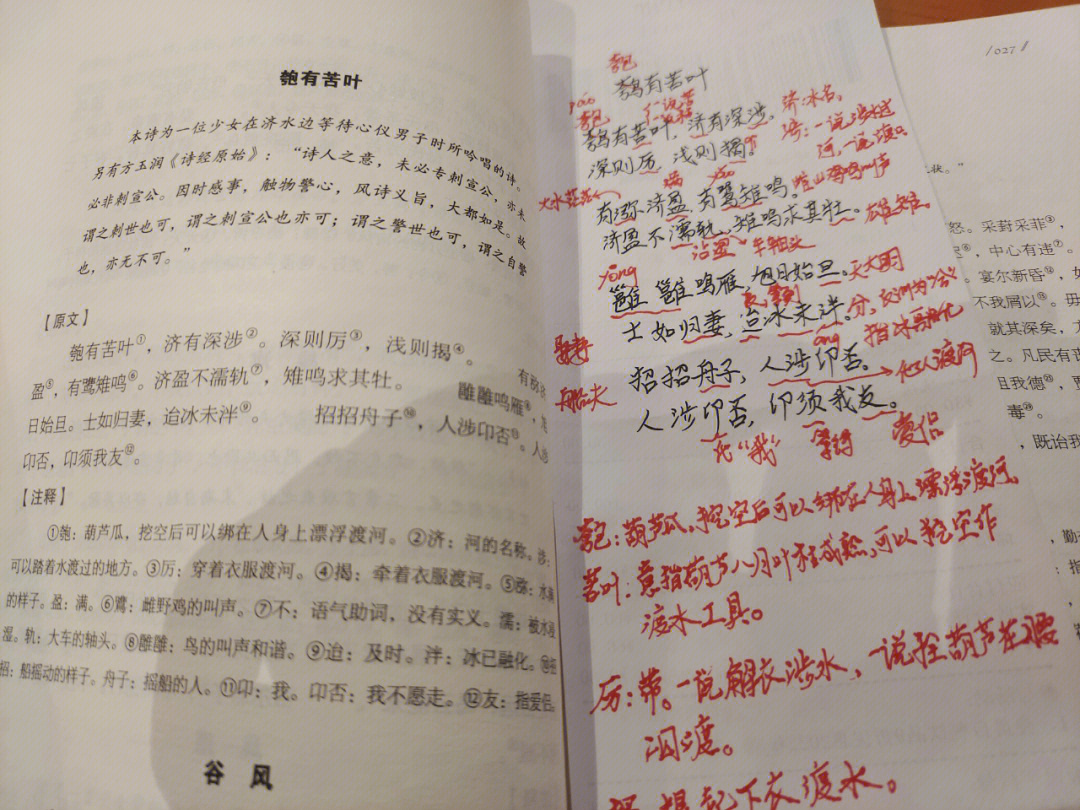 匏有苦叶
本诗为一位少女在济水边等待心仪男子时所吟唱的诗。
另有方玉润《诗经原始》：“诗人之意，未必专刺宣公，亦未
必非刺宣公。因时感事，触物警心，风诗义旨，大都如是。故
谓之刺世也可，谓之刺宣公也亦可；谓之警世也可，谓之自警
也，亦无不可。”
【原文】
匏有苦叶①，济有深涉②。深则厉③，浅则揭④。
有
盈⑤，有鷕雉鸣⑥。济盈不濡轨⑦，雉鸣求其牡。
雝雝鸣雁⑧，
日始旦。士如归妻，迨冰未泮⑨。
招招舟子⑩，人涉卬否⑪。人涉
卬否，卬须我友⑫。
【注释】
①匏：葫芦瓜，挖空后可以绑在人身上漂浮渡河。②济：河的名称。涉：
可以踏着水渡过的地方。③厉：穿着衣服渡河。④揭：牵着衣服渡河。⑤弥：水
的样子。盈：满。⑥鷕：雌野鸡的叫声。⑦不：语气助词，没有实义。濡：被水浸
湿。轨：大车的轴头。⑧雝雝：鸟的叫声和谐。⑨迨：及时。泮：冰已融化。⑩招
招：船摇动的样子。舟子：摇船的人。⑪卬：我。卬否：我不愿走。⑫友：指爱侣。
谷 风
匏
匏有苦叶
páo
匏
一说苦
匏有苦叶，济有深涉。
济：水名。
深则厉，浅则揭。
涉：一说涉水过
河，一说渡口。
满
大水茫茫
有瀰济盈，有鷕雉鸣。
雌山鸡鸣叫声
济盈不濡轨，雉鸣求其牡。
雄雉。
沾湿
车轴头
yōng
雝雝鸣雁，旭日始旦。
天大明
士如归妻，迨冰未泮。
分，
指冰融化
招招舟子，人涉卬否。
他人渡河
船夫
人涉卬否，卬须我友。
代“我”
等待
爱侣
匏：葫芦瓜，挖空后可以绑在人身上漂浮渡河。
苦叶：意指葫芦八月叶枯成熟，可以挖空作
渡水工具。
厉：带。一说解衣涉水，一说拴葫芦在腰
泅渡。
提起下衣渡水。
/027//
状。”
怒。采葑采菲③，
，中心有违⑦。
宴尔新昏⑩，如
不我屑以⑮。毋
就其深矣，
之。凡民有
且我德㉓，
毒㉘。
，既诒我